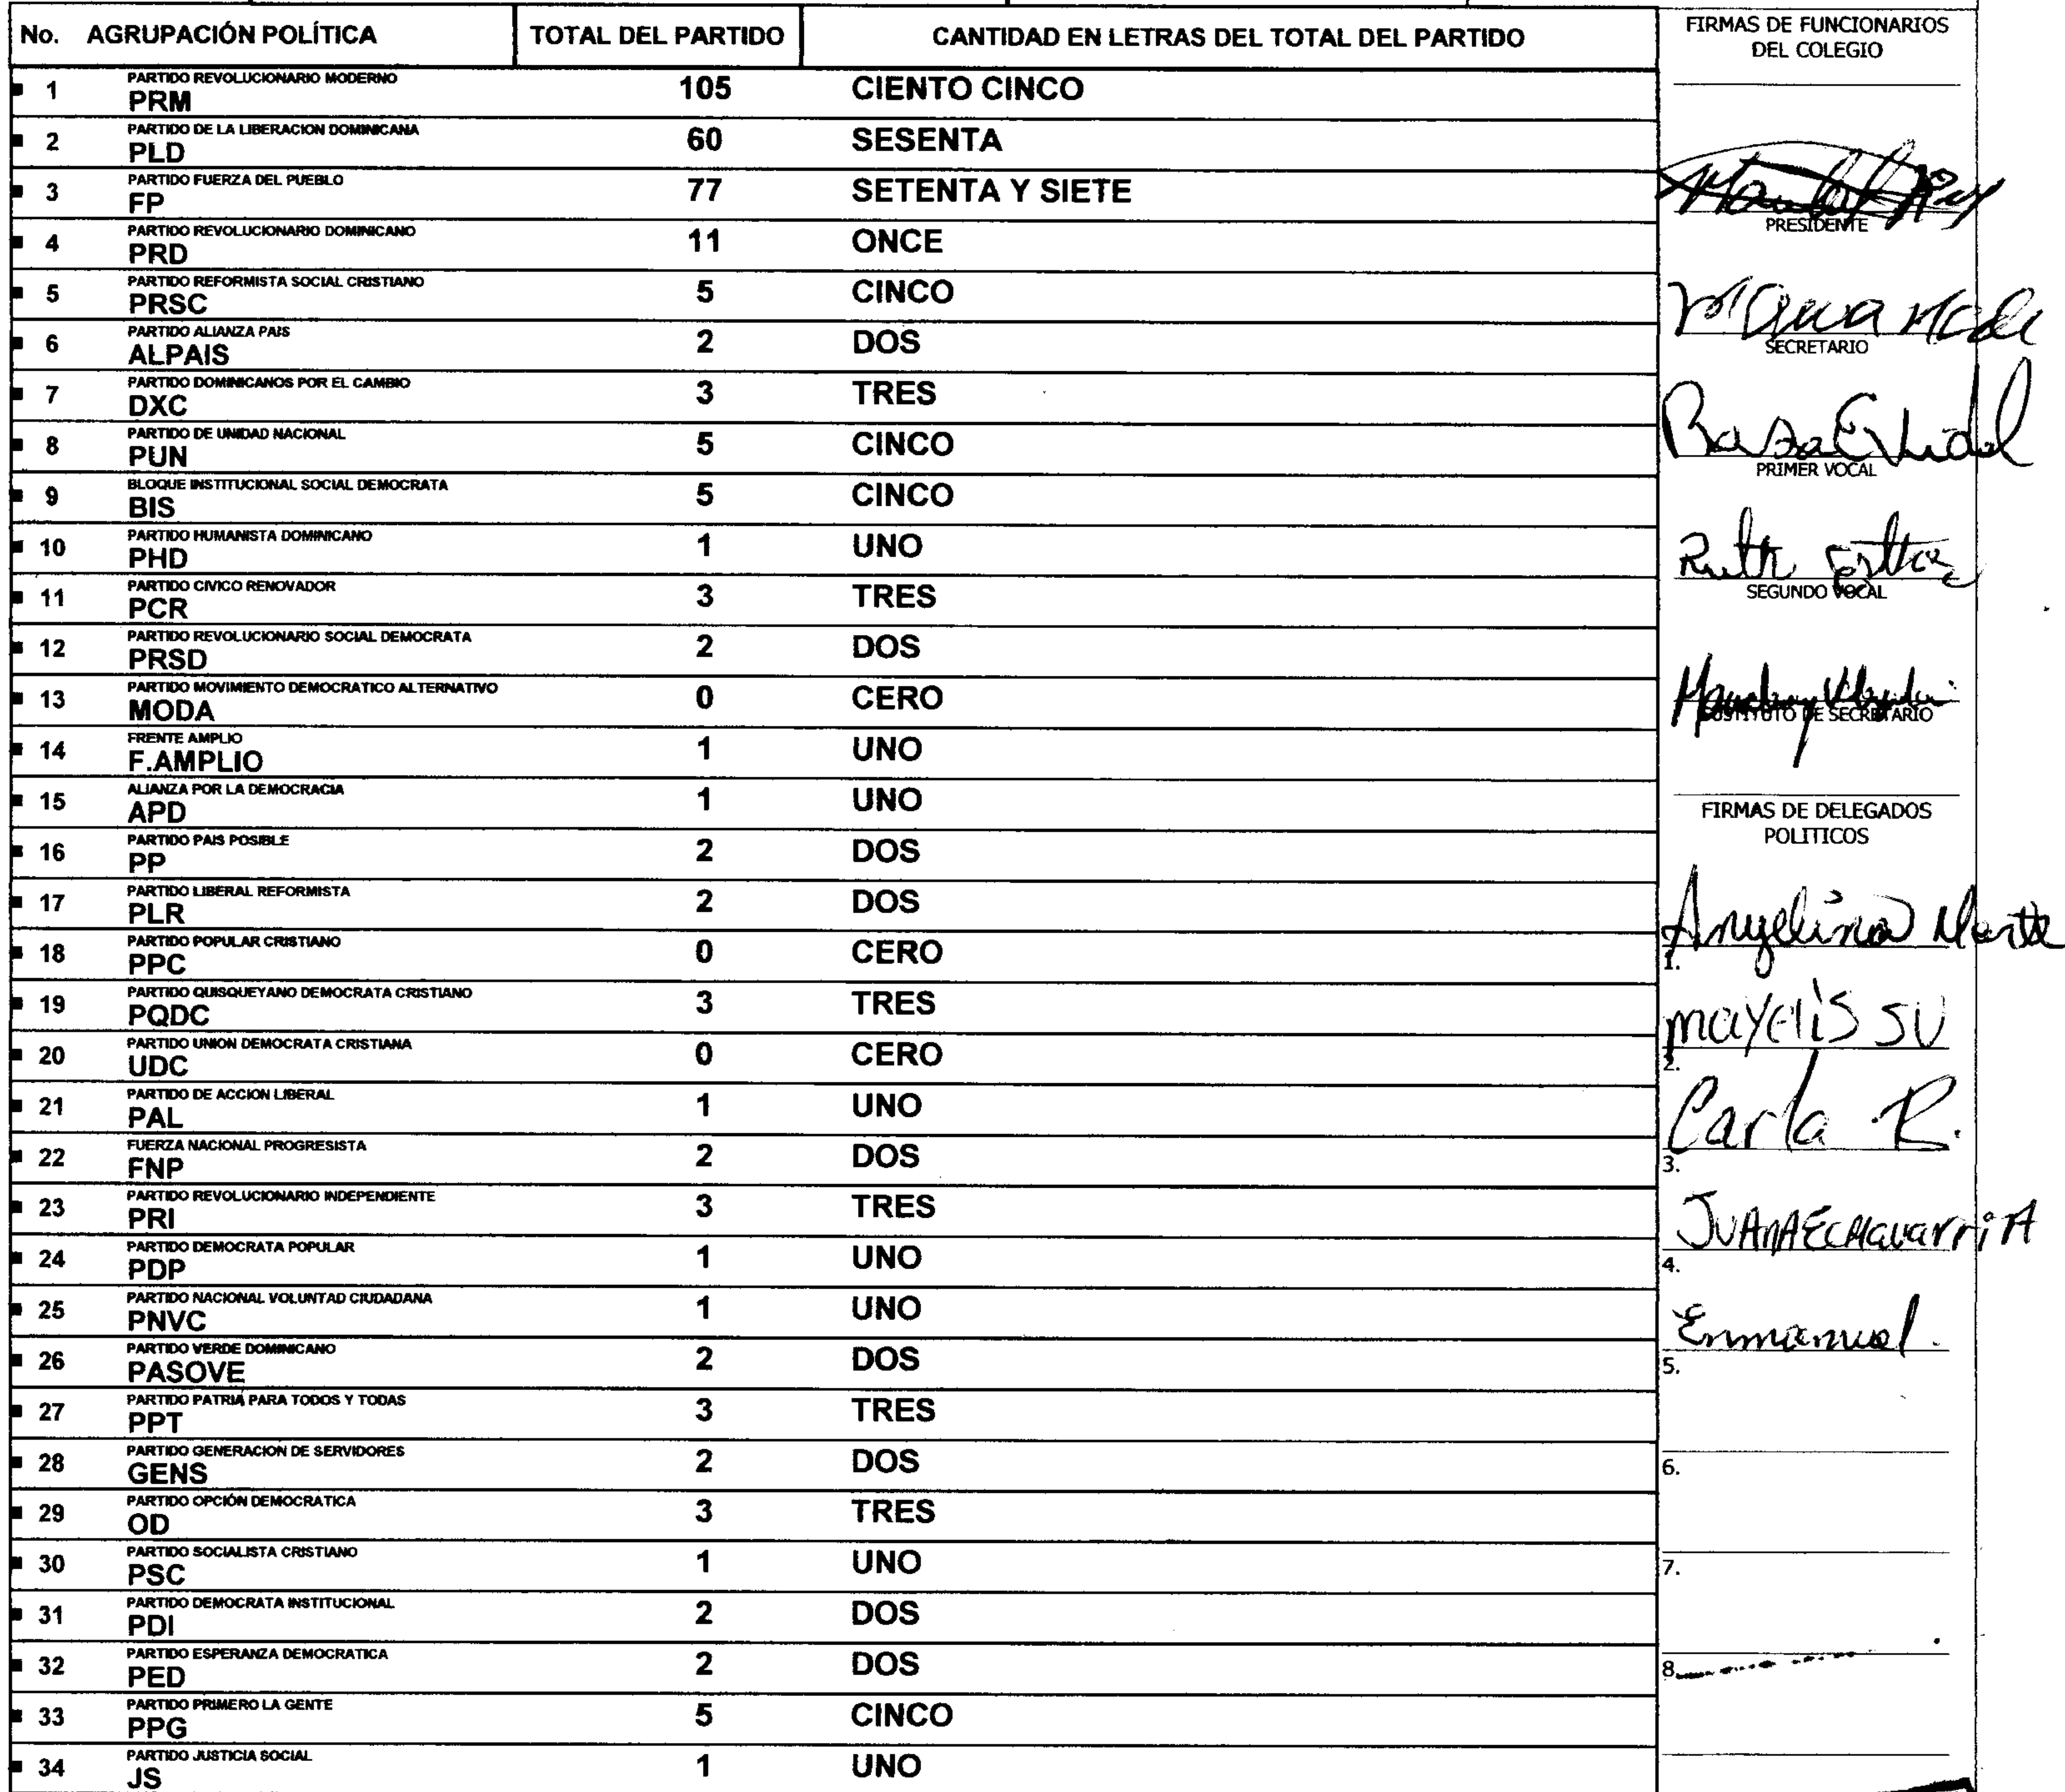 No. AGRUPACIÓN POLÍTICA TOTAL DEL PARTIDO CANTIDAD EN LETRAS DEL TOTAL DEL PARTIDO
PARTIDO REVOLUCIONARIO MODERNO
1 PRM 105 CIENTO CINCO
PARTIDO DE LA LIBERACION DOMINICANA
2 PLD 60 SESENTA
PARTIDO FUERZA DEL PUEBLO
3 FP 77 SETENTA Y SIETE
PARTIDO REVOLUCIONARIO DOMINICANO
4 PRD 11 ONCE
PARTIDO REFORMISTA SOCIAL CRISTIANO
5 PRSC 5 CINCO
PARTIDO ALIANZA PAIS
6 ALPAIS 2 DOS
PARTIDO DOMINICANOS POR EL CAMBIO
7 DXC 3 TRES
PARTIDO DE UNIDAD NACIONAL
8 PUN 5 CINCO
BLOQUE INSTITUCIONAL SOCIAL DEMOCRATA
9 BIS 5 CINCO
PARTIDO HUMANISTA DOMINICANO
10 PHD 1 UNO
PARTIDO CIVICO RENOVADOR
11 PCR 3 TRES
PARTIDO REVOLUCIONARIO SOCIAL DEMOCRATA
12 PRSD 2 DOS
PARTIDO MOVIMIENTO DEMOCRATICO ALTERNATIVO
13 MODA 0 CERO
FRENTE AMPLIO
14 F.AMPLIO 1 UNO
ALIANZA POR LA DEMOCRACIA
15 APD 1 UNO
PARTIDO PAIS POSIBLE
16 PP 2 DOS
PARTIDO LIBERAL REFORMISTA
17 PLR 2 DOS
PARTIDO POPULAR CRISTIANO
18 PPC 0 CERO
PARTIDO QUISQUEYANO DEMOCRATA CRISTIANO
19 PQDC 3 TRES
PARTIDO UNION DEMOCRATA CRISTIANA
20 UDC 0 CERO
PARTIDO DE ACCION LIBERAL
21 PAL 1 UNO
FUERZA NACIONAL PROGRESISTA
22 FNP 2 DOS
PARTIDO REVOLUCIONARIO INDEPENDIENTE
23 PRI 3 TRES
PARTIDO DEMOCRATA POPULAR
24 PDP 1 UNO
PARTIDO NACIONAL VOLUNTAD CIUDADANA
25 PNVC 1 UNO
PARTIDO VERDE DOMINICANO
26 PASOVE 2 DOS
PARTIDO PATRIA PARA TODOS Y TODAS
27 PPT 3 TRES
PARTIDO GENERACION DE SERVIDORES
28 GENS 2 DOS
PARTIDO OPCIÓN DEMOCRATICA
29 OD 3 TRES
PARTIDO SOCIALISTA CRISTIANO
30 PSC 1 UNO
PARTIDO DEMOCRATA INSTITUCIONAL
31 PDI 2 DOS
PARTIDO ESPERANZA DEMOCRATICA
32 PED 2 DOS
PARTIDO PRIMERO LA GENTE
33 PPG 5 CINCO
PARTIDO JUSTICIA SOCIAL
34 JS 1 UNO
FIRMAS DE FUNCIONARIOS
DEL COLEGIO
PRESIDENTE
SECRETARIO
Rosa E Vidal
PRIMER VOCAL
Ruth
SEGUNDO VOCAL
SUSTITUTO DE SECRETARIO
FIRMAS DE DELEGADOS
POLITICOS
Angelina
1.
mayelis SU
2.
Carla R.
3.
JUANA EcHavarriA
4.
Enmanuel.
5.
6.
7.
8.